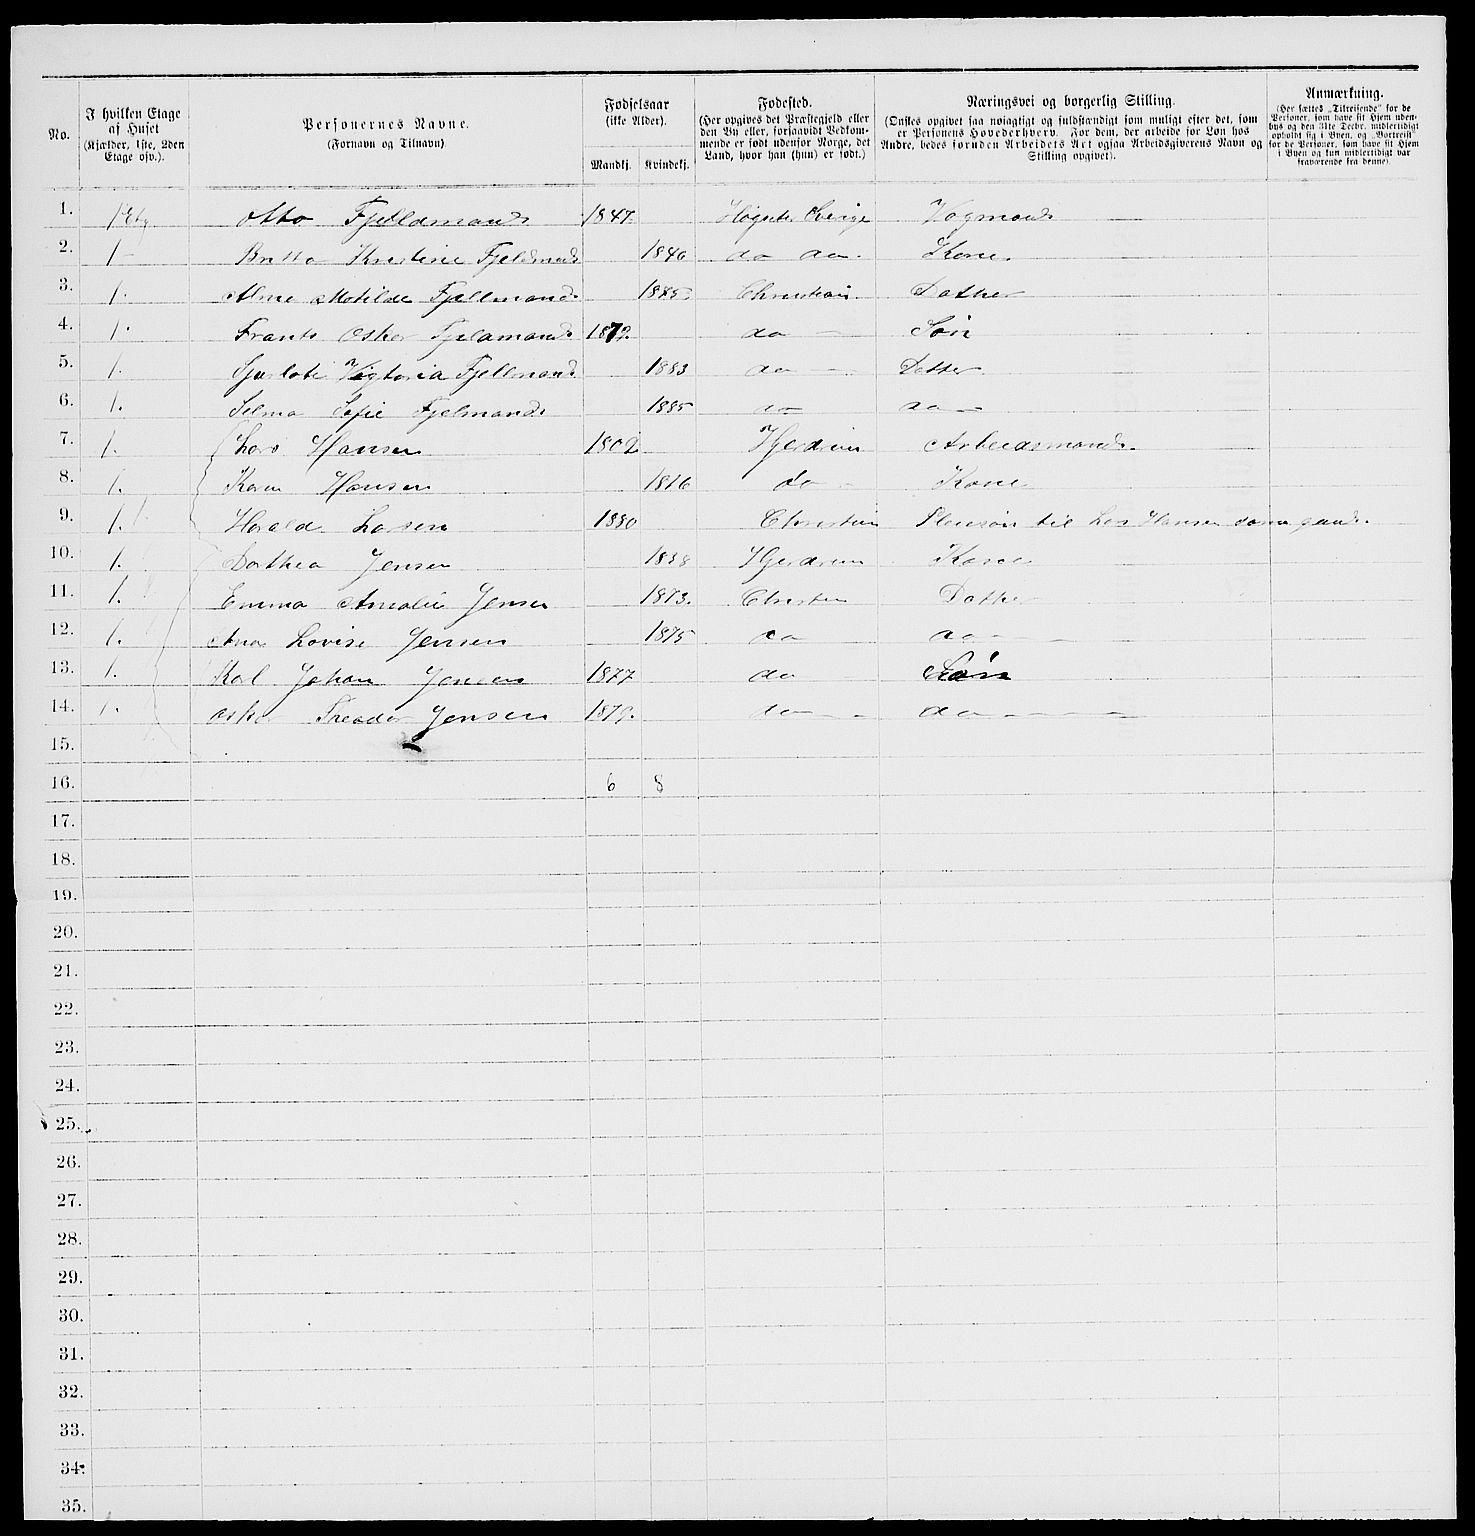 No. | I hvilken Etage af Huset (Kjælder, 1ste, 2den Etage osv.). | Personernes Navne. (Fornavn og Tilnavn). | Fødselsaar (ikke Alder). Mandkj. | Kvindekj. | Fødested. (Her opgives det Præstegjeld eller den By eller, forsaavidt Vedkommende er født udenfor Norge, det Land, hvor han (hun) er født.) | Næringsvei og borgerlig Stilling. (Ønskes opgivet saa nøiagtigt og fuldstændigt som muligt efter det, som er Personens Hovederhverv. For dem, der arbeide for Løn hos Andre, bedes foruden Arbeidets Art ogsaa Arbeidsgiverens Navn og Stilling opgivet). | Anmærkning. (Her sættes „Tilreisende" for de Personer, som have sit Hjem udenbys og den 31te Decbr. midlertidigt opholdt sig i Byen, og „Bortreist" for de Personer, som have sit Hjem i Byen og kun midlertidigt var fraværende fra denne).
1. 1 Etg Otto Fjeldmand 1847. Sverige Vogmand
2. 1 Britta Kristine Fjeldmand 1846 do do. Kone.
3. 1. Alma Matilde Fjellmand 1875 Christian. Datter
4. 1. Frants Osker Fjeldmand 1872. do Søn
5. 1. Sjarlote Vigtoria Fjellmand 1883 do Datter
6. 1. Selma Sofie Fjelmand 1885 do do
7. 1. Lars Hansen 1802 Hjerdrum Arbeidsmand.
8. 1. Karen Hansen 1816 do Kone
9. 1. Harald Larsen 1880 Christian Pleiesøn til Lars Hansen
10. 1. Dorthea Jensen 1838 Hjerdrum Kone
11. 1. Emma Amalie Jensen 1873. Christian Datter
12. 1. Ana Lovise Jensen 1875 do do
13. 1. Karl Johan Jensen 1877 do Søn
14. 1. Osker Theodor Jensen 1879. do do
15.
16. 6 8
17.
18.
19.
20.
21.
22.
23.
24.
25.
26.
27.
28.
29.
30.
31.
32.
33.
34.
35.